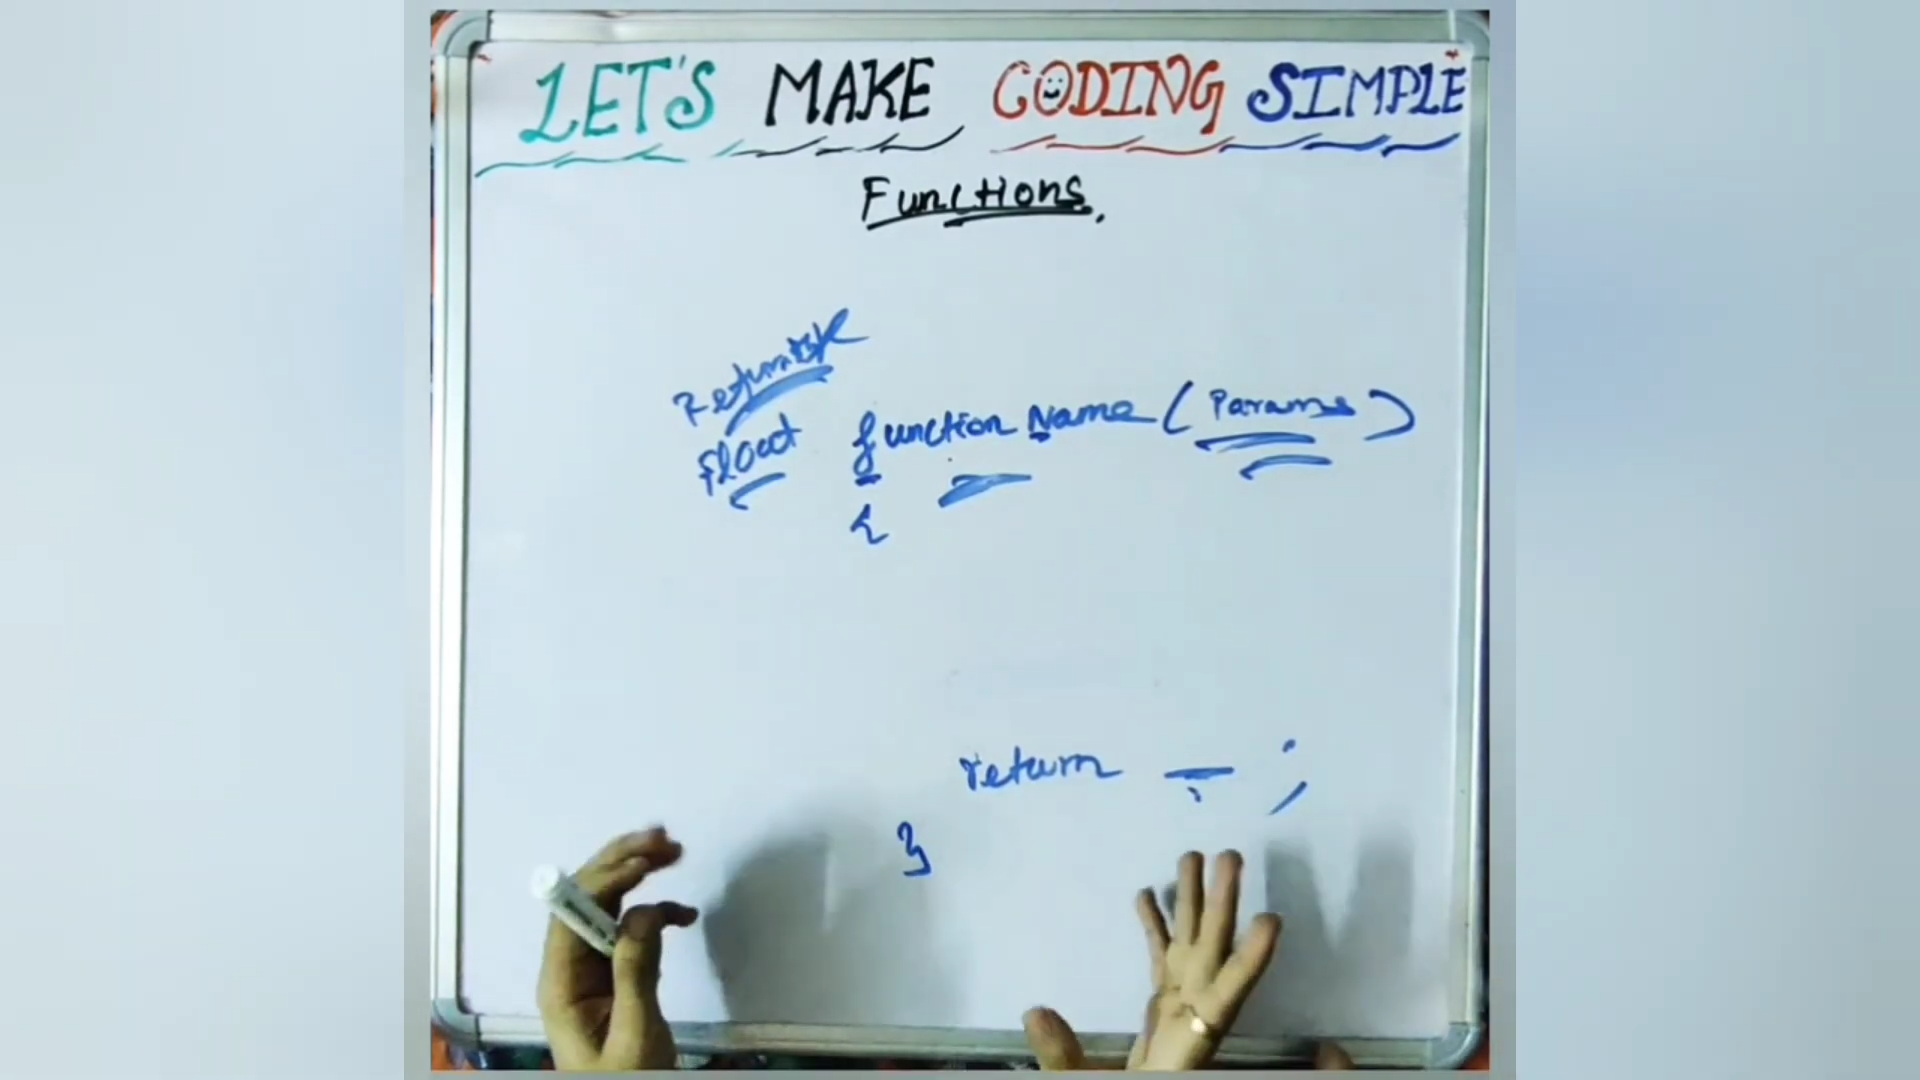 LET'S MAKE CODING SIMPLE
Functions.
Return
float functionName (Params)
{
return _ ;
}